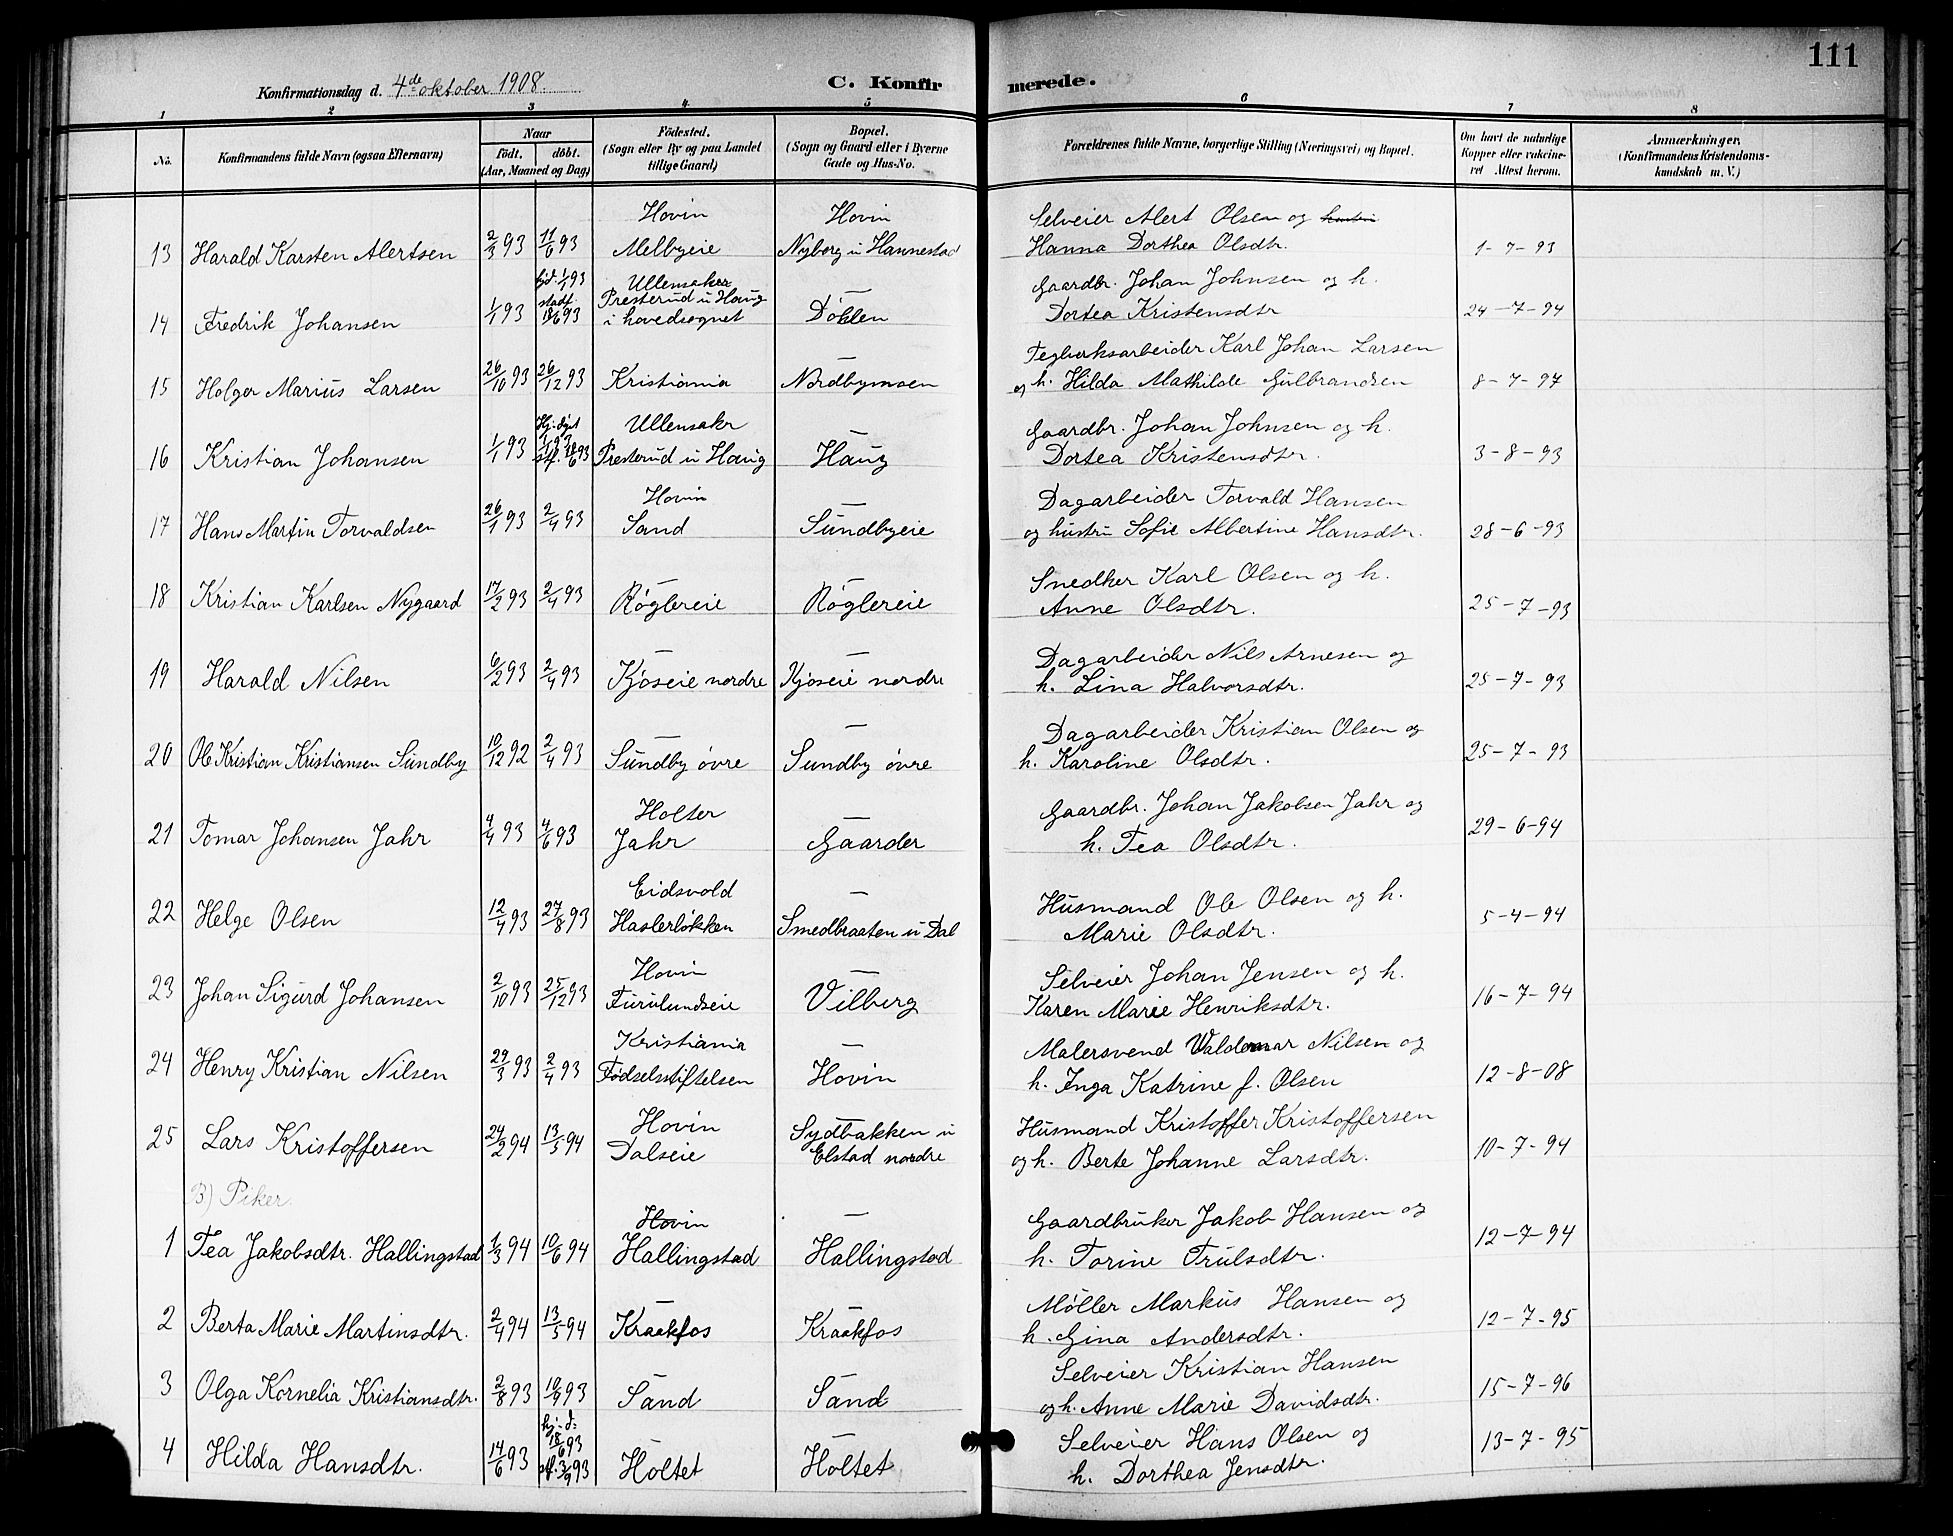 111
Konfirmationsdag d. 4de oktober 1908.
C. Konfirmerede.
1 2 3 4 5 6 7 8
No.
Konfirmandens fulde Navn (ogsaa Efternavn)
Naar
født. døbt.
(Aar, Maaned og Dag)
Fødested.
(Sogn eller By og paa Landet
tillige Gaard)
Bopæl.
(Sogn og Gaard eller i Byerne
Gade og Hus-No.
Forældrenes fulde Navne, borgerlige Stilling (Næringsvei) og Bopæl.
Om havt de naturlige
Kopper eller vakcine-
ret Attest herom.
Anmærkninger,
(Konfirmandens Kristendoms-
kundskab m. V.)
Hovin Hovin Selveier Alert Olsen og
13 Harald Karsten Alertsen 2/3 93 11/6 93 Melbyeie Nyborg u Hannestad Hanna Dorthea Olsdtr. 1-7-93
1/1 93 Ullensaker Gaardbr. Johan Johnsen og h.
stadf. Presterud u Haug —
14 Fredrik Johansen 1/1 93 18/6 93 i hovedsognet Døhlen Dortea Kristensdtr 24-7-94
— Teglverksarbeider Karl Johan Larsen
15 Holger Marius Larsen 26/10 93 26/12 93 Kristiania Nordbymoen og h. Hilda Mathilde Gulbrandsen 8-7-97
Hj. døpt Ullensaker — Gaardbr. Johan Johnsen og h.
16 Kristian Johansen 1/1 93 1/1 93 stf. 18/6 93 Presterud u Haug Haug Dortea Kristensdtr. 3-8-93
Hovin — Dagarbeider Torvald Hansen
17 Hans Martin Torvaldsen 26/1 93 2/4 93 Sand Sundbyeie og hustru Sofie Albertine Hansdtr. 28-6-93
— — Snedker Karl Olsen og h.
18 Kristian Karlsen Nygaard 17/2 93 2/4 93 Røglereie Røglereie Anne Olsdtr. 25-7-93
— — Dagarbeider Nils Arnesen og
19 Harald Nilsen 6/2 93 2/4 93 Kjøseie nordre Kjøseie nordre h. Lina Halvorsdtr. 25-7-93
— — Dagarbeider Kristian Olsen og
20 Ole Kristian Kristiansen Sundby 10/12 92 2/4 93 Sundby øvre Sundby øvre h. Karoline Olsdtr. 25-7-93
Holter — Gaardbr. Johan Jakobsen Jahr og
21 Tomar Johansen Jahr 4/4 93 4/6 93 Jahr Gaarder h. Tea Olsdtr. 29-6-94
Eidsvold — Husmand Ole Olsen og h.
22 Helge Olsen 12/4 93 27/8 93 Haslerløkken Smedbraaten u Dal Marie Olsdtr. 5-4-94
Hovin — Selveier Johan Jensen og h.
23 Johan Sigurd Johansen 2/10 93 25/12 93 Furulundseie Vilberg Karen Marie Henriksdtr. 16-7-94
Kristiania — Malersvend Valdemar Nilsen og
24 Henry Kristian Nilsen 29/3 93 2/4 93 Fødselsstiftelsen Hovin h. Inga Katrine f. Olsen 12-8-08
Hovin Sydbakken u Husmand Kristoffer Kristoffersen
25 Lars Kristoffersen 24/2 94 13/5 94 Dalseie Elstad nordre og h. Berte Johanne Larsdtr. 10-7-94
B) Piker.
Hovin — Gaardbruker Jakob Hansen og
1 Tea Jakobsdtr. Hallingstad 1/3 94 10/6 94 Hallingstad Hallingstad h. Torine Trulsdtr. 12-7-94
— — Møller Markus Hansen og
2 Berta Marie Martinsdtr. 2/4 94 13/5 94 Kraakfos Kraakfos h. Gina Andersdtr. 12-7-95
— — Selveier Kristian Hansen
3 Olga Kornelia Kristiansdtr. 2/8 93 10/9 93 Sand Sand og h. Anne Marie Davidsdtr. 15-7-96
hj. d. 18/6 93 — — Selveier Hans Olsen og
4 Hilda Hansdtr. 14/6 93 stf. 3/9 93 Holtet Holtet h. Dorthea Jensdtr. 13-7-95